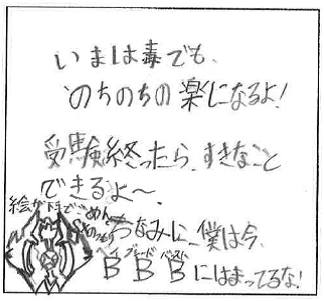 いまは毒でも、
のちのちの楽になるよ!
受験終ったら、すきなこと
できるよ〜。
絵が下手でごめん
ちなみに、僕は今、
ベイ ブレード バースト
B B Bにはまってるな!